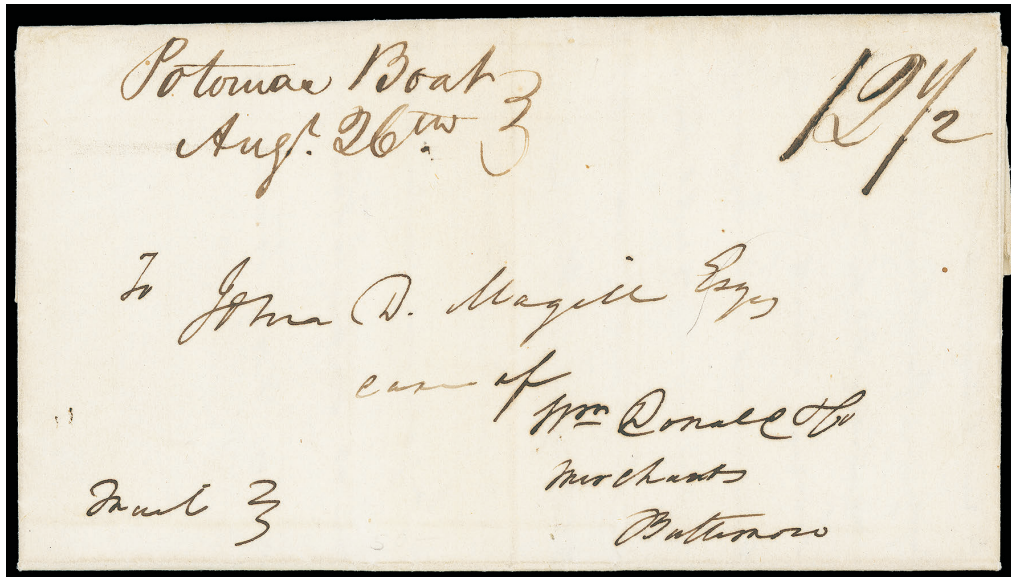 Potomac Boat
Augt. 26th 3
12 1/2
To John D. Magill Esqr
care of
Wm Donald & Co
Merchants
Baltimore
Mail 3